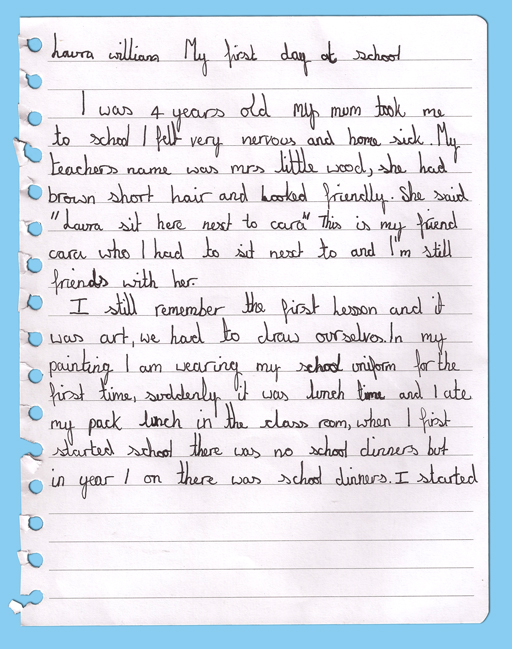 Laura william My first day at school
I was 4 years old my mum took me
to school I felt very nervous and home sick. My
teachers name was mrs little wood, she had
brown short hair and looked friendly. She said
"Laura sit here next to cara" This is my friend
cara who I had to sit next to and I"m still
friends with her.
I still remember the first lesson and it
was art, we had to draw ourselves. In my
painting I am wearing my school uniform for the
first time, suddenly it was lunch time and I ate
my pack lunch in the class room, when I first
started school there was no school dinners but
in year 1 on there was school dinners. I started